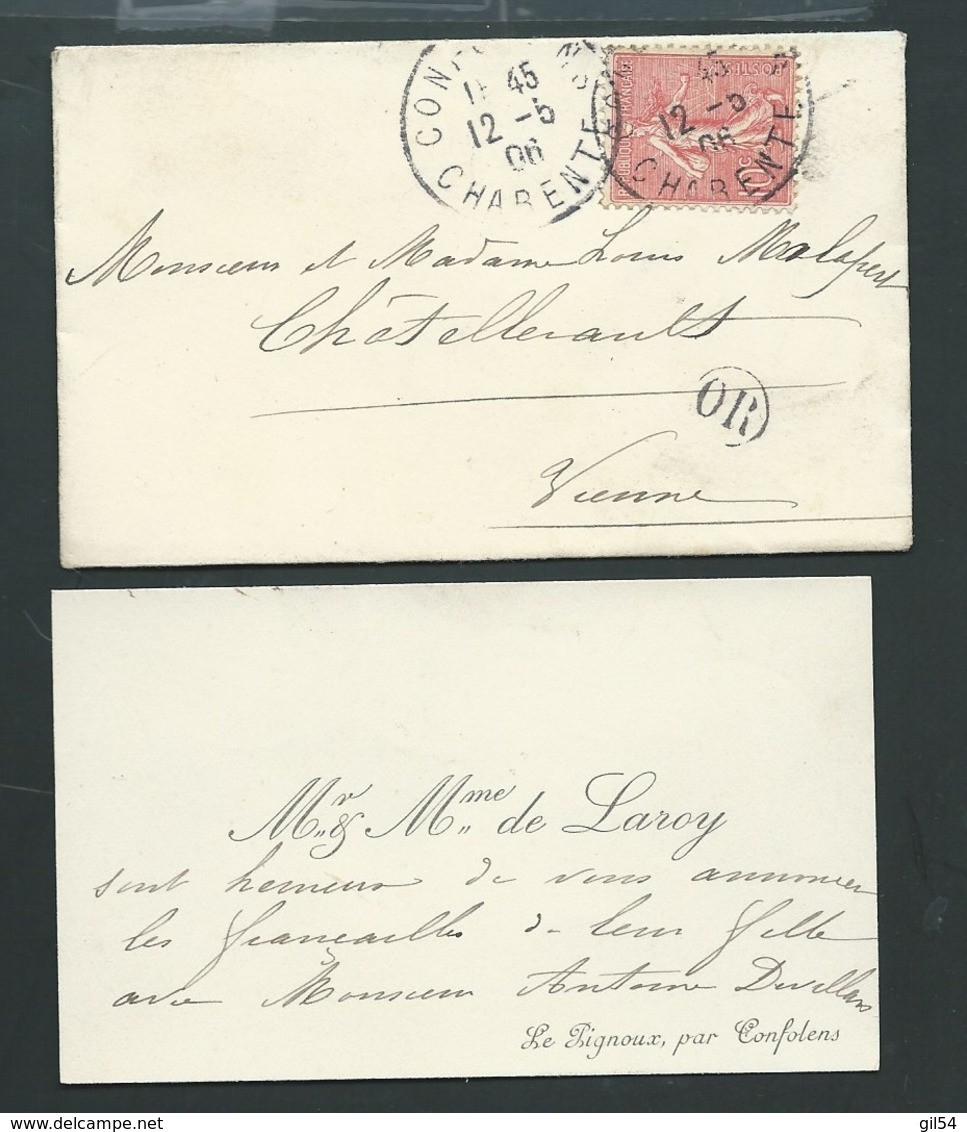 CONFOLENS
11 45
12 -5
06
CHARENTE
45
12 -5
06
CHARENTE
REPUBLIQUE FRANÇAISE
POSTES
10c
Monsieur et Madame Louis Malapert
Châtellerault
OR
Vienne
Mr. & Mme. de Laroy
sont heureux de vous annoncer
les fiançailles de leur fille
avec Monsieur Antoine
Le Pignoux, par Confolens
gil54